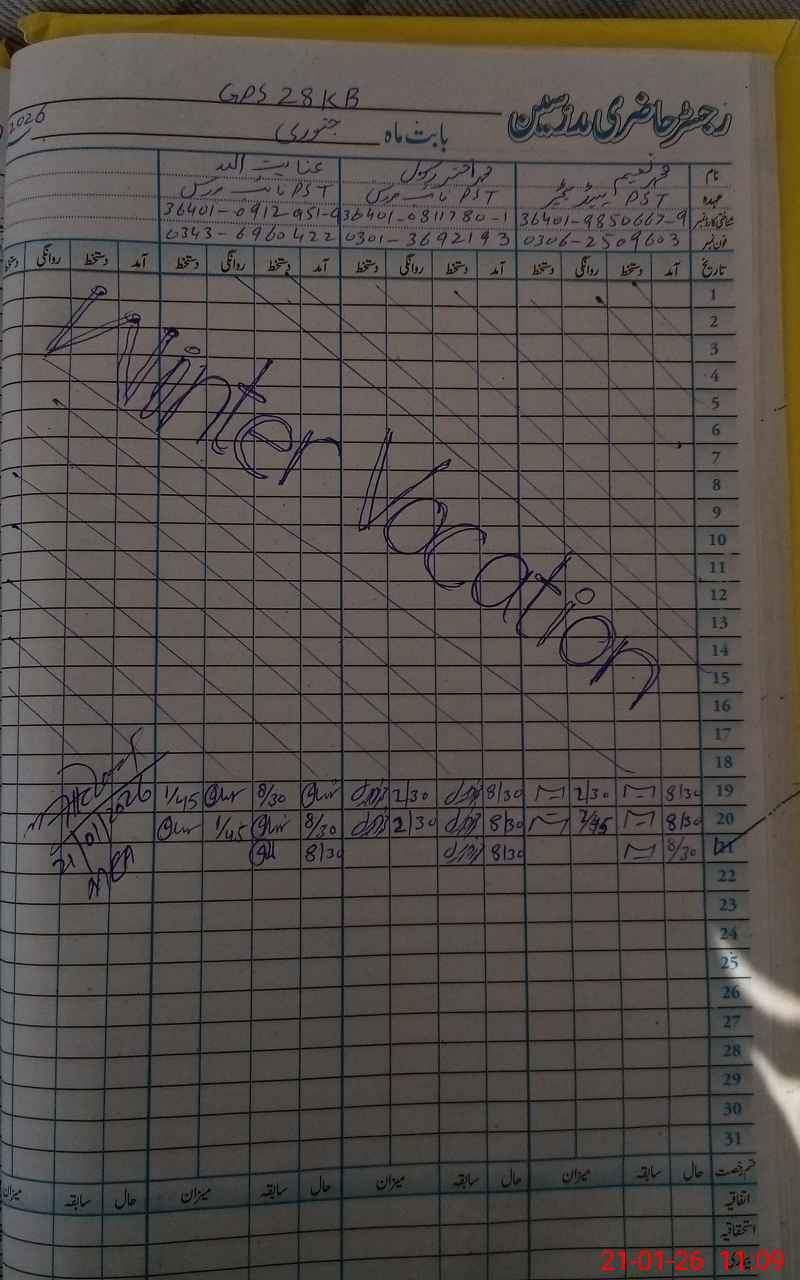 GPS 28 KB
رجسٹر حاضری مدرسین
بابت ماہ جنوری 2026
نام محمد نعیم محمد اختر رسول عنایت اللہ
عہدہ PST ہیڈ ٹیچر PST PST
شناختی کارڈ نمبر 36401-9850667-9 36401-0811780-1 36401-0912951-9
فون نمبر 0306-2509603 0301-3692193 0343-6960422
تاریخ آمد دستخط روانگی دستخط آمد دستخط روانگی دستخط آمد دستخط روانگی دستخط آمد دستخط روانگی دستخط
Winter Vacation
1
2
3
4
5
6
7
8
9
10
11
12
13
14
15
16
17
18
19 8/30 2/30 8/30 2/30 8/30 1/45
20 8/30 8/30 2/30 8/30 1/45
21 8/30 8/30 8/30
21/01/2026
MEA
22
23
24
25
26
27
28
29
30
31
قسم رخصت حال سابقہ میزان حال سابقہ میزان حال سابقہ میزان حال سابقہ میزان
اتفاقیہ
استحقاقیہ
21-01-26 11:09